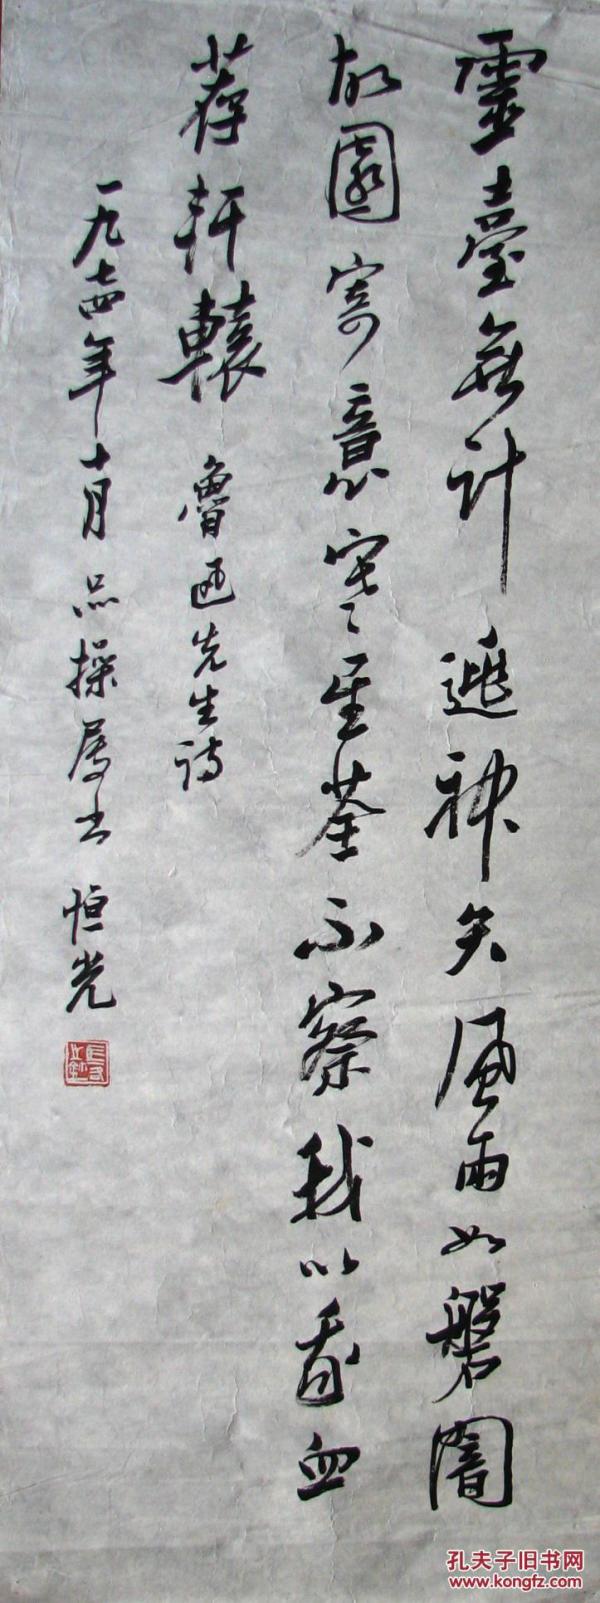 靈臺無計逃神矢風雨如磐闇
故園寄意寒星荃不察我以我血
荐軒轅 魯迅先生詩
一九七四年十月品操屬书 恒光
孔夫子旧书网
www.kongfz.com